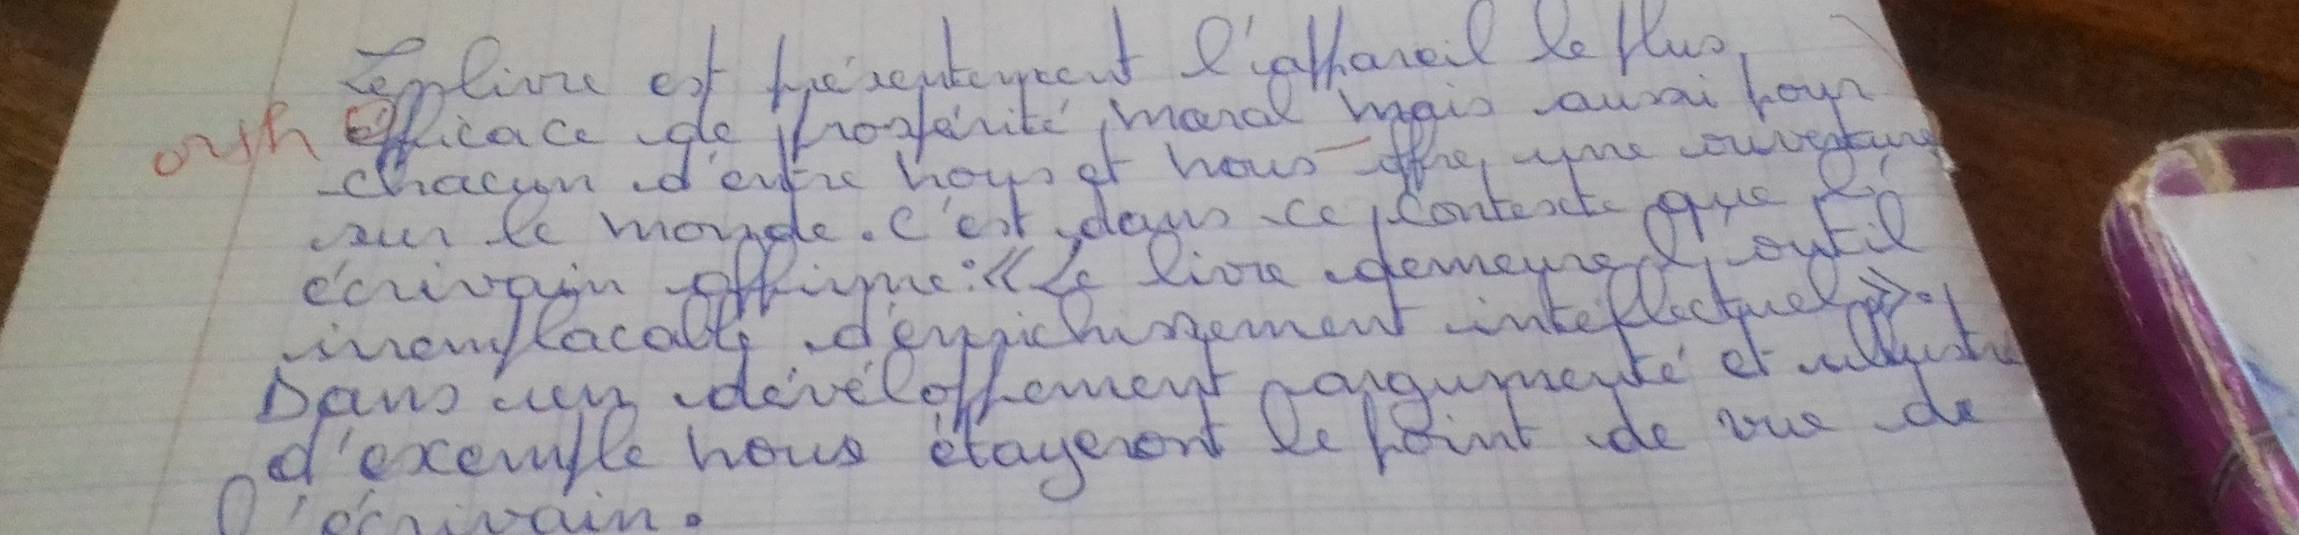 Le livre est présentement l'appareil le plus
orth Efficace de prospérité, moral mais aussi pour
chacun d'entre nous et nous offre une ouverture
sur le monde. C'est dans ce contexte que l'
écrivain affirme : « Le livre demeure l'outil
irremplacable d'enrichissement intellectuel ».
Dans un dévéloppement argumenté et illustré
d'exemple nous étayeront le point de vue de
l'écrivain.